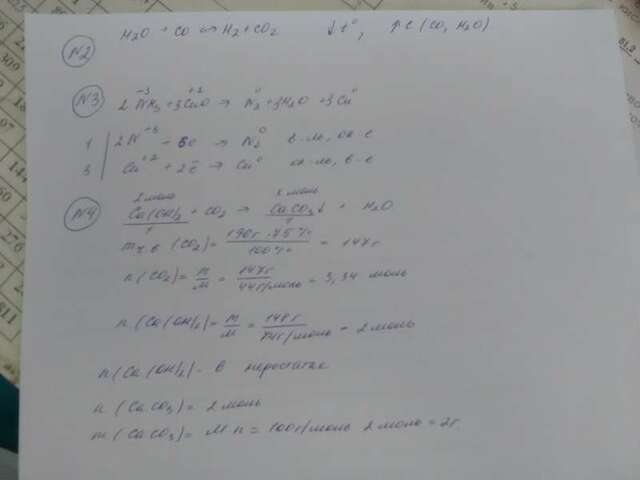 H₂O + CO ⇔ H₂ + CO₂ ↓t°, ↑C (CO, H₂O)
N2
N3
-3 +2 0 0
2NH₃ + 3CuO → N₂ + 3H₂O + 3Cu
1 | 2N⁻³ - 6е → N₂⁰ в-ль, ок-е
3 | Cu⁺² + 2ē → Cu⁰ ок-ль, в-е
N4
2 моль x моль
Ca(OH)₂ + CO₂ → CaCO₃↓ + H₂O
1 1
(CO₂) = 190г · 75% / 100% = 147г
n(CO₂) = m/M = 147г / 44г/моль = 3,34 моль
n(Ca(OH)₂) = m/M = 148г / 74г/моль = 2 моль
n(Ca(OH)₂) - в недостатке
n(CaCO₃) = 2 моль
m(CaCO₃) = M n = 100г/моль 2 моль = 2г.